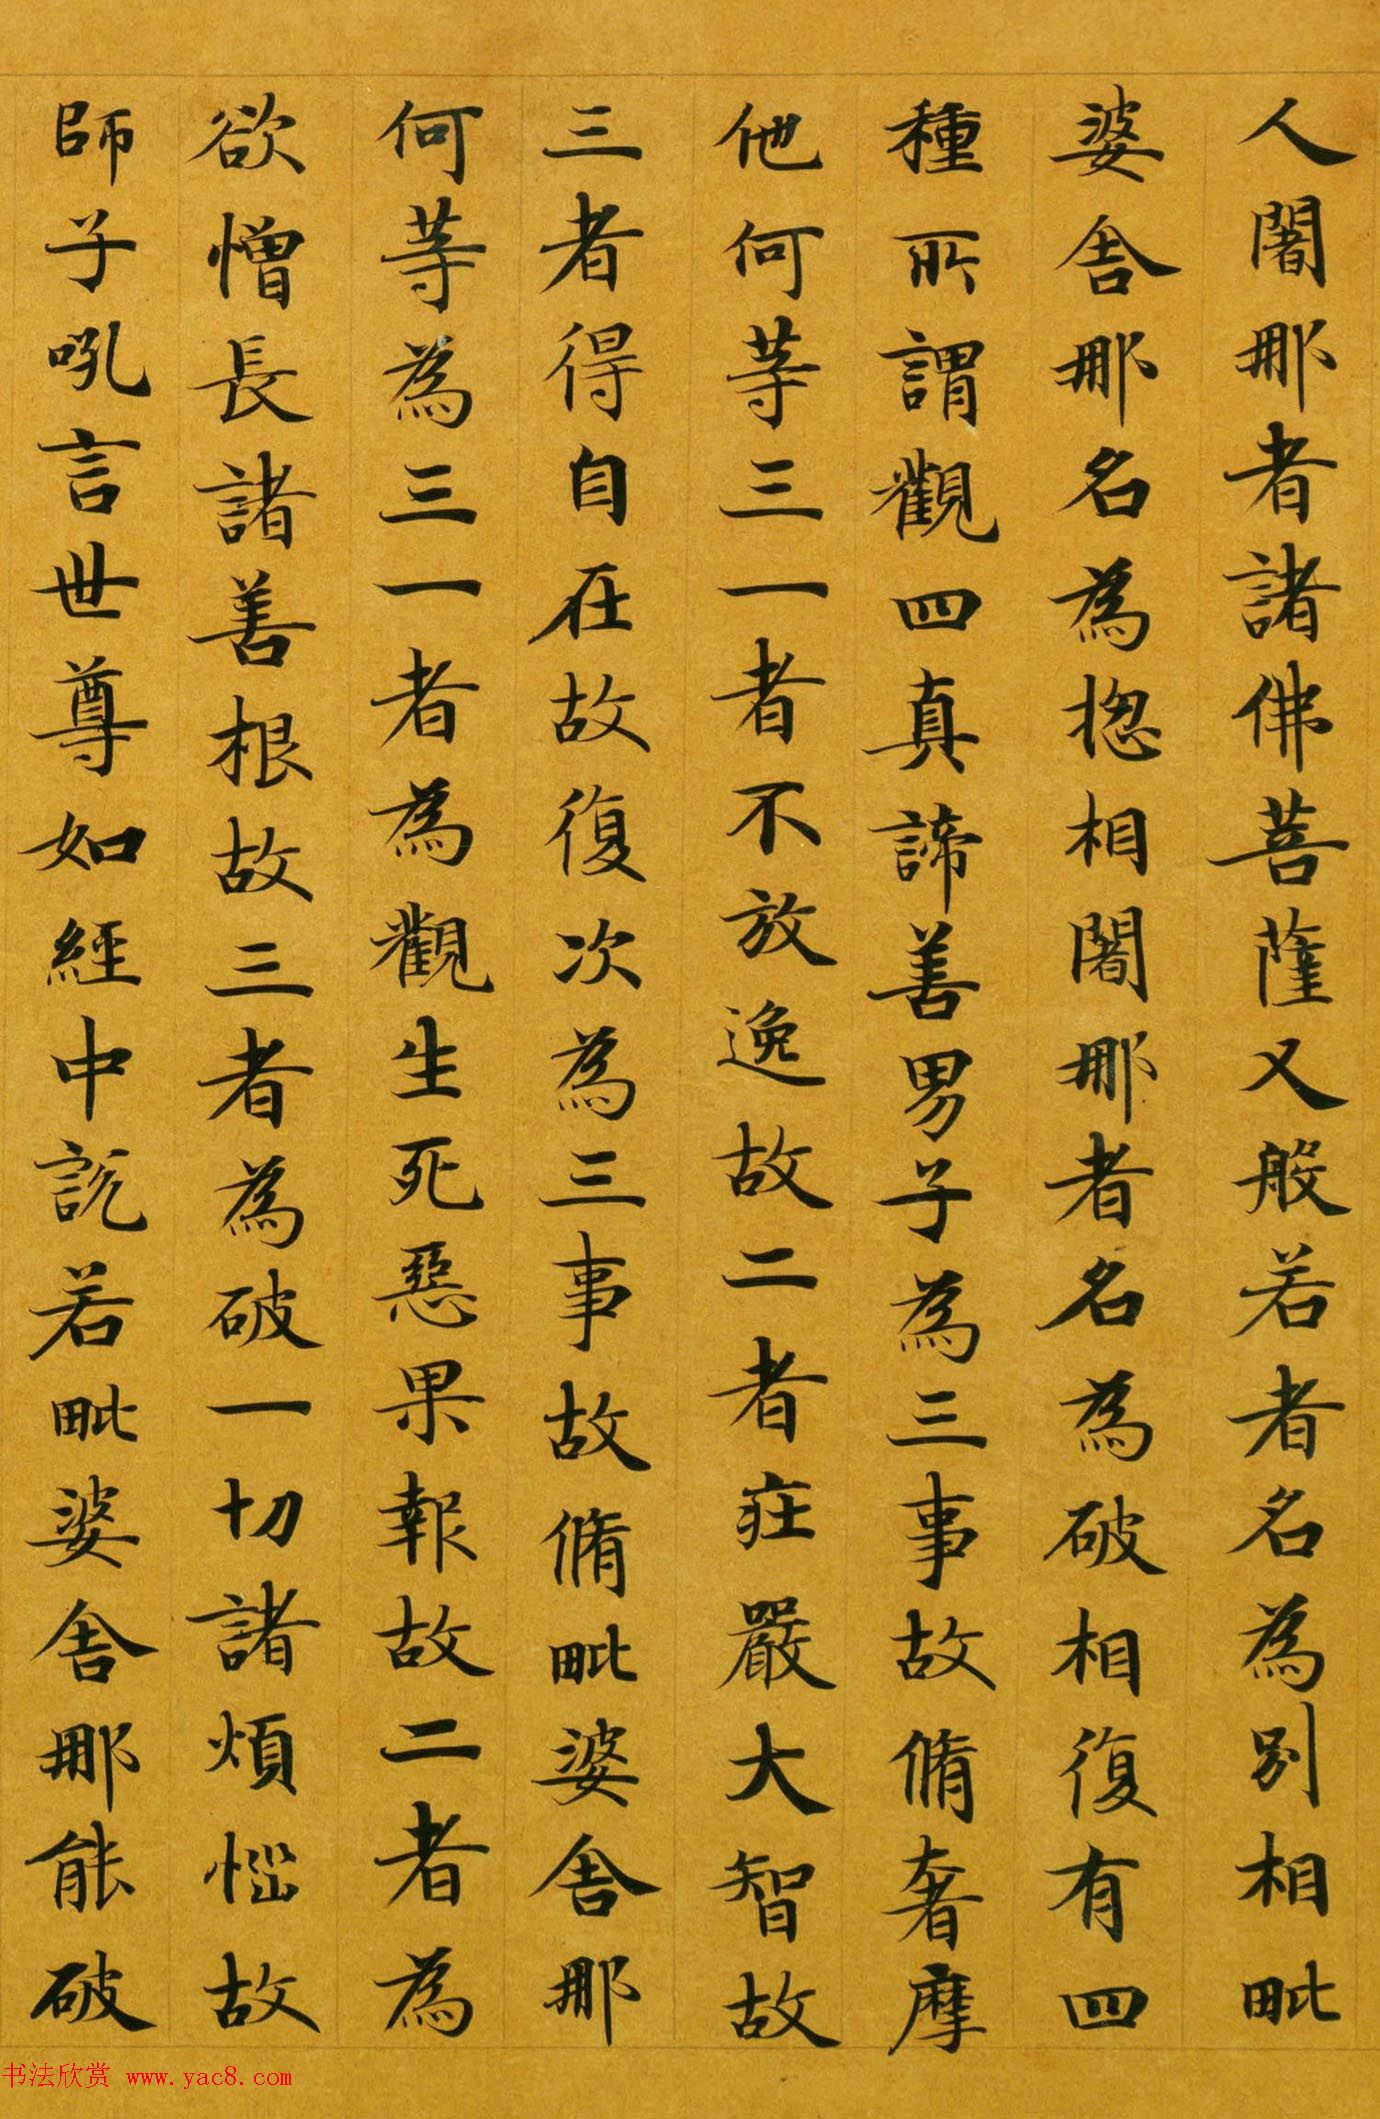 人闍那者諸佛菩薩又般若者名為別相毗
婆舍那名為捴相闍那者名為破相復有四
種所謂觀四真諦善男子為三事故脩奢摩
他何等三一者不放逸故二者莊嚴大智故
三者得自在故復次為三事故脩毗婆舍那
何等為三一者為觀生死惡果報故二者為
欲憎長諸善根故三者為破一切諸煩惱故
師子吼言世尊如經中說若毗婆舍那能破
书法欣赏 www.yac8.com